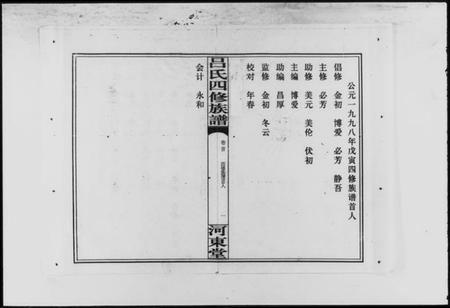 公元一九九八年戊寅四修族谱首人
倡修 金初 博爱 必芳 静吾
主修 必芳
助修 美元 美伦 优初
主编 博爱
助编 昌厚
监修 金初 冬云
校对 年春
会计 永和
吕氏四修族譜
卷首
一
河東堂